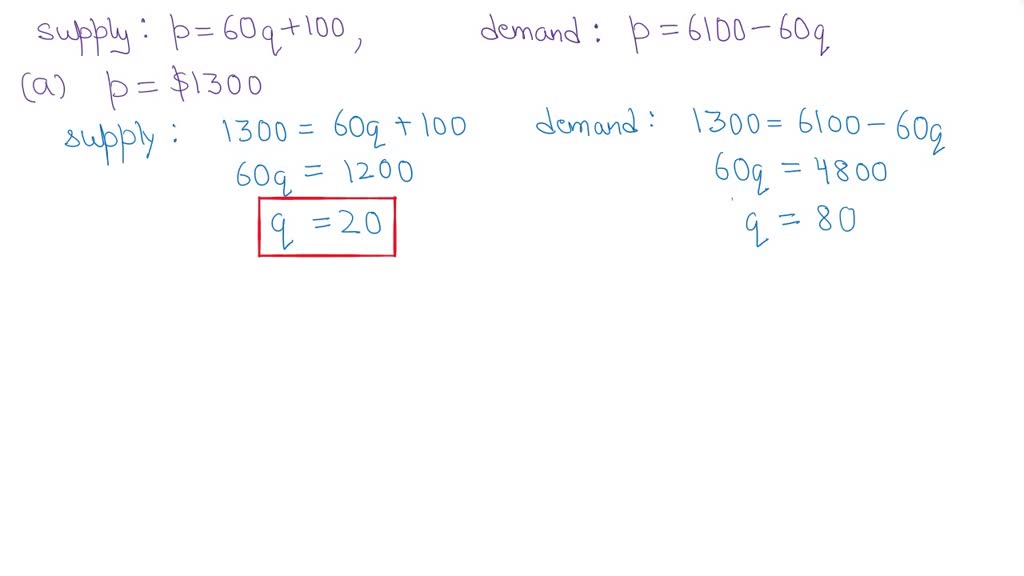 supply: p = 60q + 100, demand: p = 6100 - 60q
(a) p = $1300
supply: 1300 = 60q + 100
60q = 1200
q = 20
demand: 1300 = 6100 - 60q
60q = 4800
q = 80